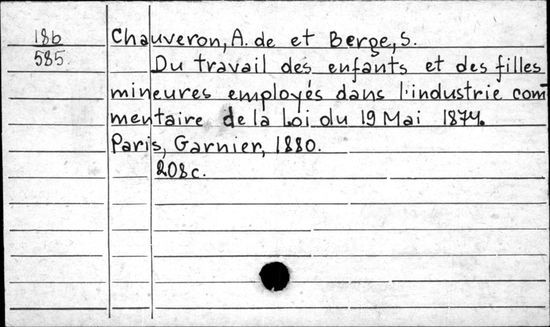 18б Chauveron, A. de et Berge, S.
585. Du travail des enfants et des filles
mineures employés dans l'industrie com-
mentaire de la Loi du 19 Mai 1874.
Paris, Garnier, 1880.
208 c.